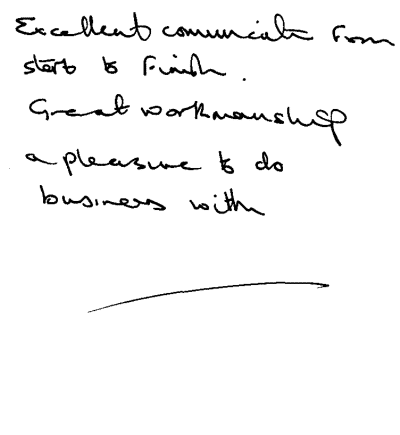 Excellent comunicate from
start to Finish.
Great workmanship
a pleasure to do
business with